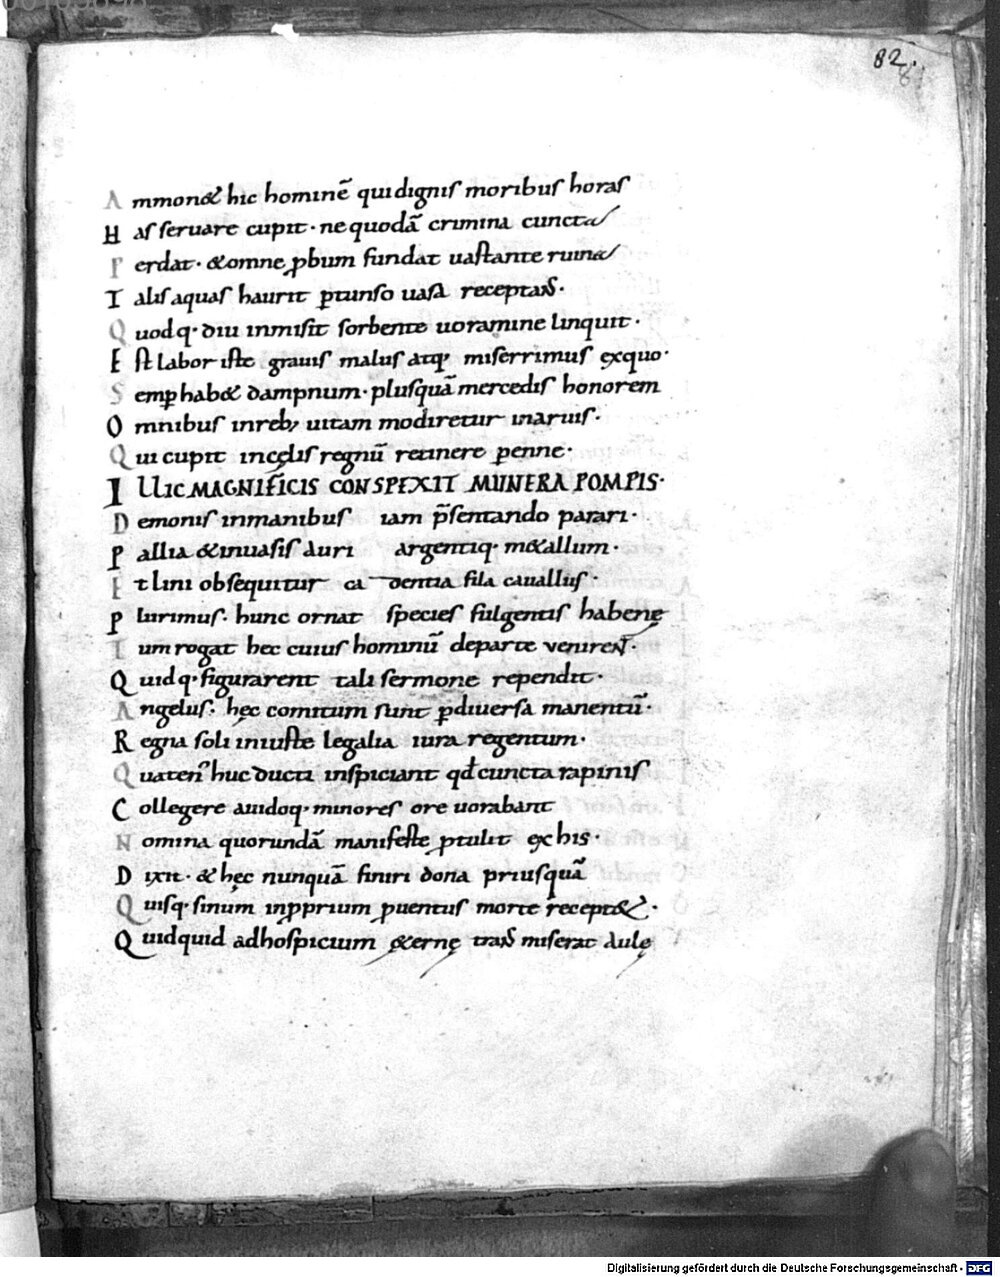 82.
Ammon& hic hominē qui dignis moribus horas
Has seruare cupit · ne quodā crimina cuncta
Perdat · &omne ꝓbum fundat uastante ruina
Talis aquas haurit ꝑtunso uase receptas ·
Quodq· diu inmisit sorbente uoramine linquit ·
Est labor iste grauis malus atq· miserrimus exquo ·
Semꝑ hab& dampnum · plusquā mercedis honorem
Omnibus inreb; uitam modiretur inaruis ·
Qui cupit incęlis regnū retinere ꝑenne ·
ILLIC MAGNIFICIS CONSPEXIT MUNERA POMPIS ·
Demonis inmanibus iam p̄sentando parari ·
Pallia &inuasis auri argentiq· m&allum ·
Et lini obsequitur ca dentia fila cauallus ·
Plurimus · hunc ornat species fulgentis habenę
Tum rogat hec cuius hominū departe venirent ·
Quidq· figurarent tali sermone rependit ·
Angelus · hęc comitum sunt ꝑdiuersa manentū ·
Regna soli iniuste legalia iura regentum ·
Quaten' huc ducti inspiciant qđ cuncta rapinis
Collegere auidoq· minores ore uorabant
Nomina quorundā manifeste ꝓtulit ex his ·
Dixit · & hęc nunquā finiri dona priusquā
Quisq· sinum inꝓprium ꝓuentus morte recept& ·
Quidquid adhospicium &ernę trans miserat aulę
Digitalisierung gefördert durch die Deutsche Forschungsgemeinschaft - DFG